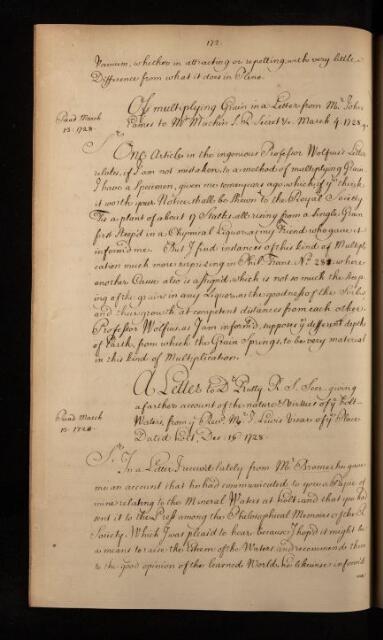 172.
Vacuum, whether in attracting or repelling, with very little
Difference from what it does in Pleno.
Of multiplying Grain in a Letter from Mr. John
Eames to Mr Machin S. R Secret &c. March 4. 1728.9.
Read March
13. 1728.
Sr.
One Article in the ingenious Professor Wolfius's Letter
relates, if I am not mistaken, to a method of multiplying Grain
I have a Specimen, given me ten years ago, which if yu think
it worth your Notice shall be shewn to the Royal Society
Tis a plant of about 17 Stalks all rising from a Single Grain
first steep'd in a Chymical Liquor as my Friend who gave it
inform'd me. But I find instances of this kind of Multipli
cation much more surprising in Phil: Trans. No. where
another Cause also is assign'd, which is not so much the steep
ing of the grains in any Liquor as the goodness of the Soil
and their growth at competent distances from each other.
Professor Wolfius, as I am inform'd, supposes ye different depths
of Earth, from which the Grain Springs, to be very material
in this kind of Multiplication.
A Letter to Dr. Rutty R. S. Secr. giving
a farther account of the nature & Virtues of ye Holt-
Waters, from ye Revd. Mr. J. Lewis Vicar of ye Place
Dated Holt, Dec. 18 1728.
Read March
13. 1728.
Sr.
In a Letter I received lately from Mr. he gave
me an account that he had communicated to you a Paper of
mine relating to the Mineral Waters at Holt, and that you had
sent it to the Press among the Philosophical Memoirs of the R
Society. Which I was pleas'd to hear, because I hop'd it might be
a means to raise the Esteem of the Waters and recommend them
to the good opinion of the learned World. he likewise inform'd
me